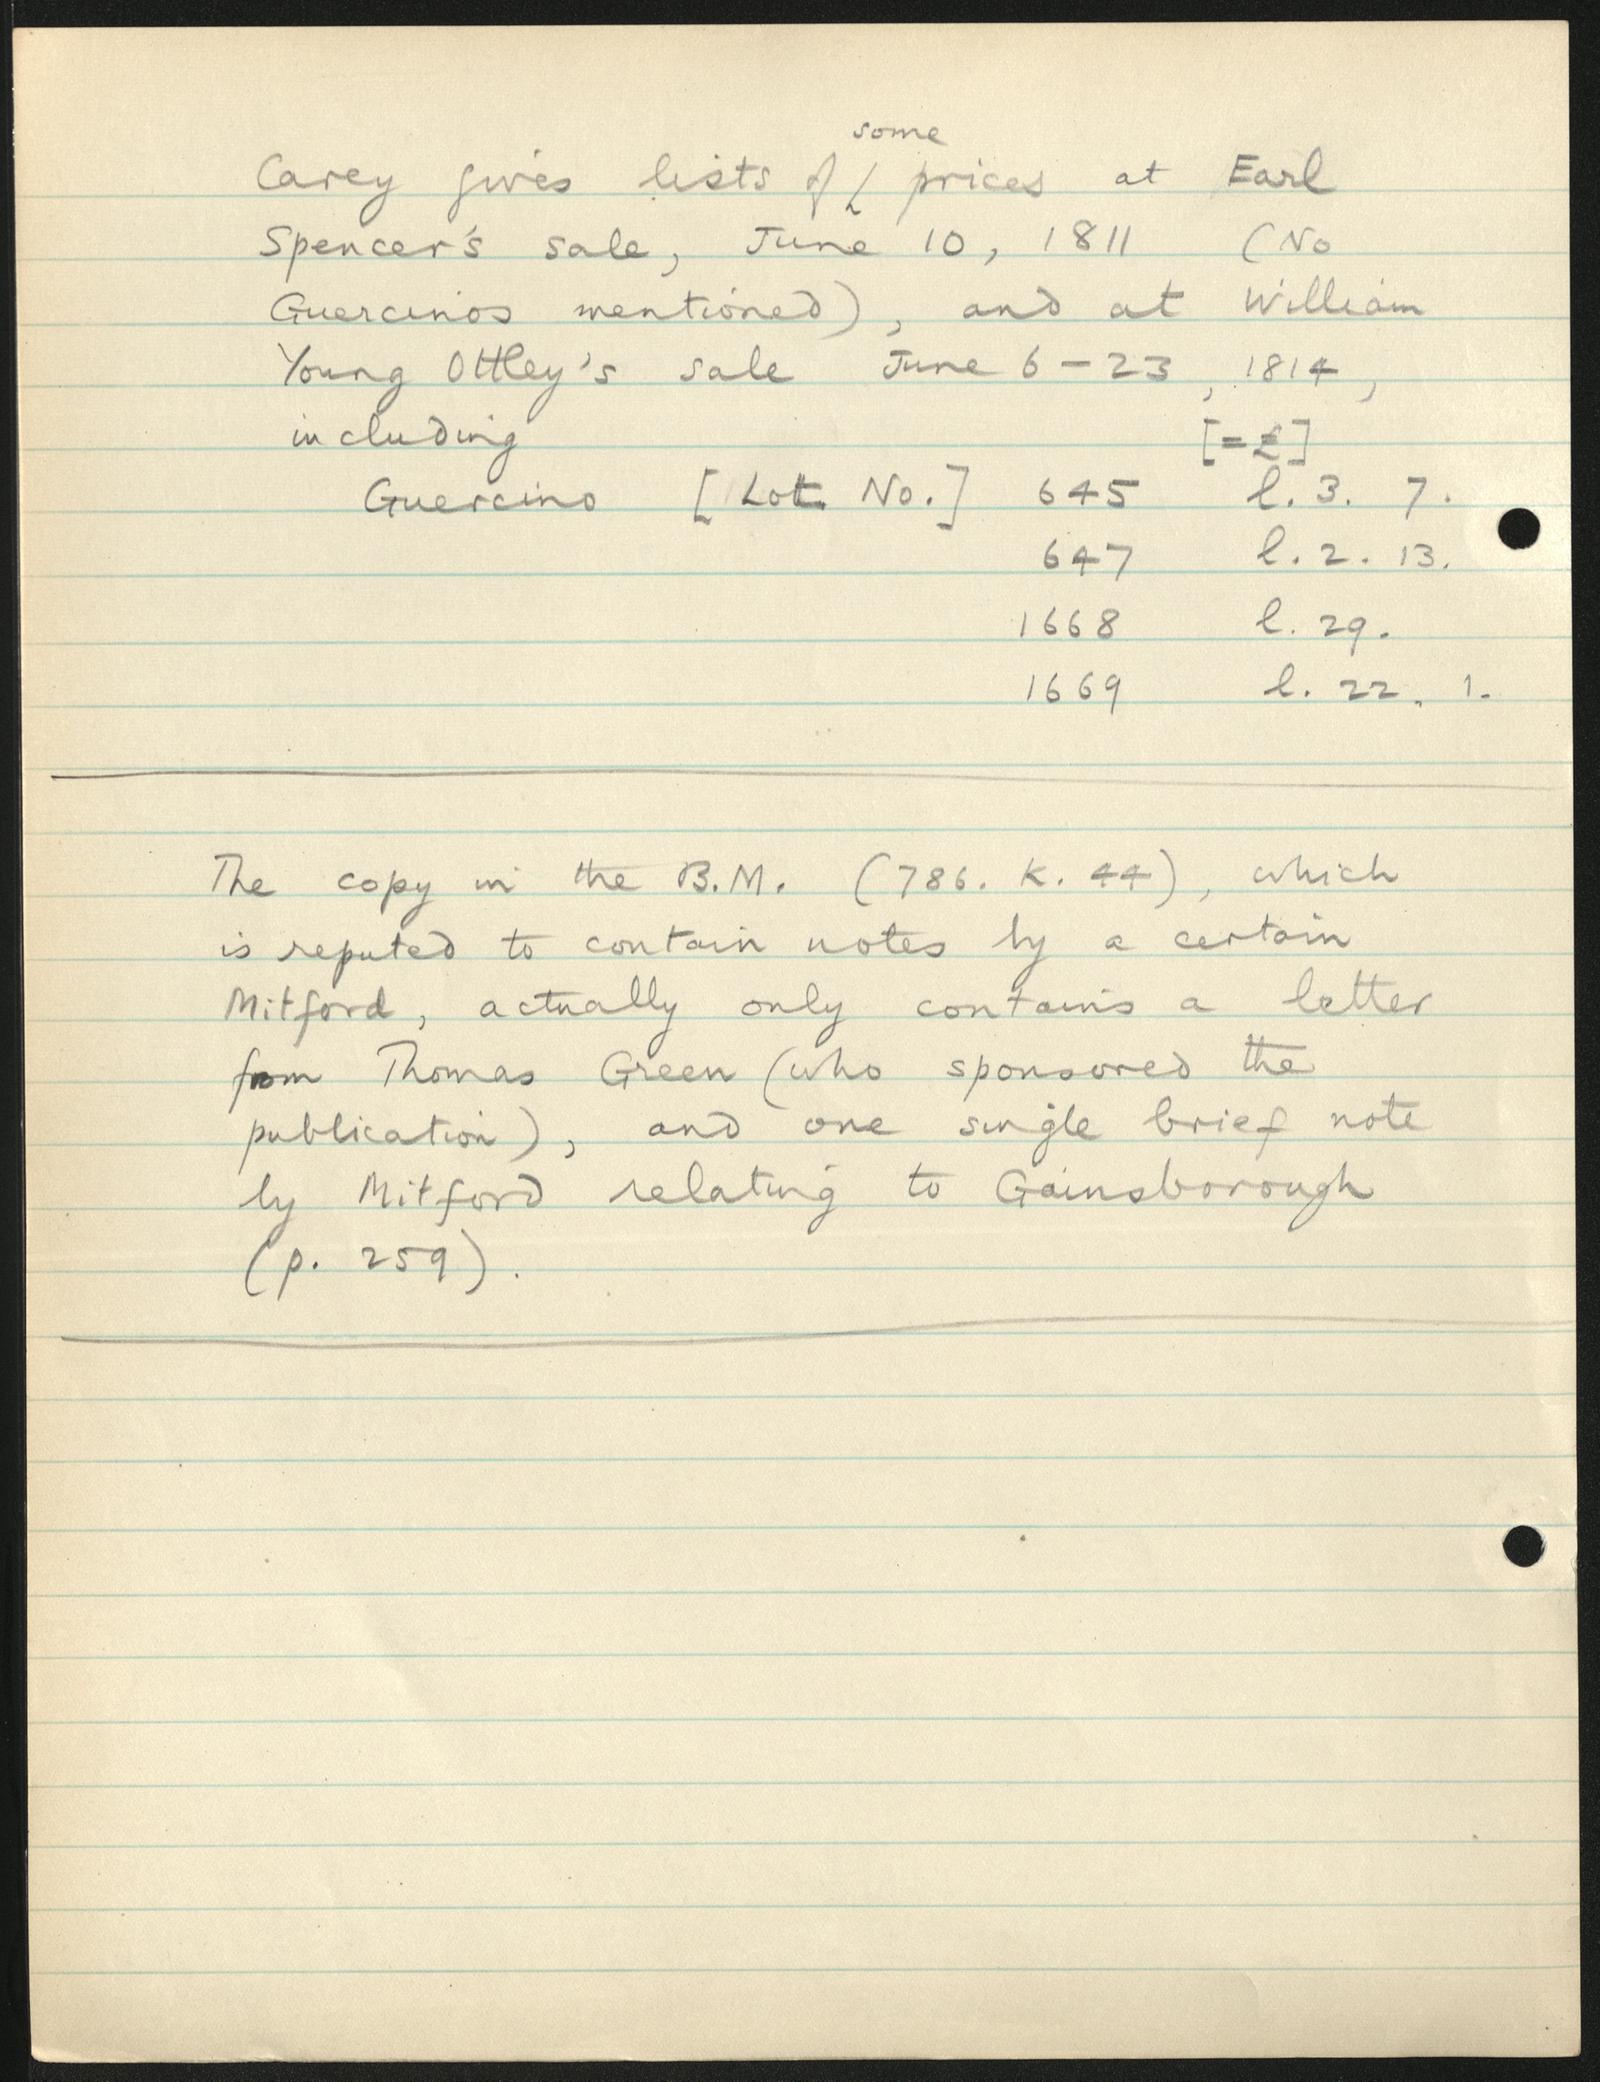 Carey gives lists of some prices at Earl
Spencer's sale, June 10, 1811 (No
Guercinos mentioned), and at William
Young Ottley's sale June 6-23, 1814,
including [=£]
Guercino [Lot No.] 645 l. 3. 7.
647 l. 2. 13.
1668 l. 29.
1669 l. 22. 1.
The copy in the B.M. (786. K. 44), which
is reputed to contain notes by a certain
Mitford, actually only contains a letter
from Thomas Green (who sponsored the
publication), and one single brief note
by Mitford relating to Gainsborough
(p. 259).